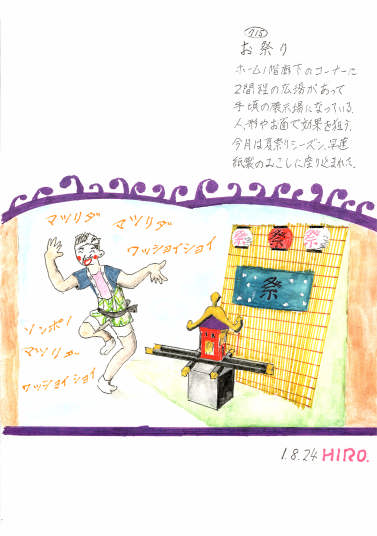 715
お祭り
ホーム1階廊下のコーナーに
2間程の広場があって
手頃の展示場になっている。
人形やお面で効果を狙う。
今月は夏祭りシーズン、早速
紙製のみこしに座り込まれた。
マツリダ
マツリダ
ワッショイショイ
祭
祭
祭
祭
ソンポノ
マツリダ
ワッショイショイ
1.8.24 HIRO.